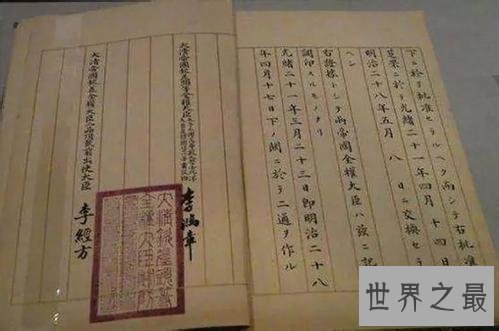 下ニ於テ批准セラルヘク而シテ右批准
芝罘ニ於テ光緒二十一年四月十四日
明治二十八年五月八日ニ交換セラ
ヘシ
右證據トシテ兩帝國全權大臣ハ茲ニ記
調印スルモノナリ
光緒二十一年三月二十三日即明治二十八
年四月十七日下ノ關ニ於テ二通ヲ作ル
大清帝國欽差頭等全權大臣
李鴻章
大清帝國欽差全權大臣二品頂戴前出使大臣
李經方
世界之最